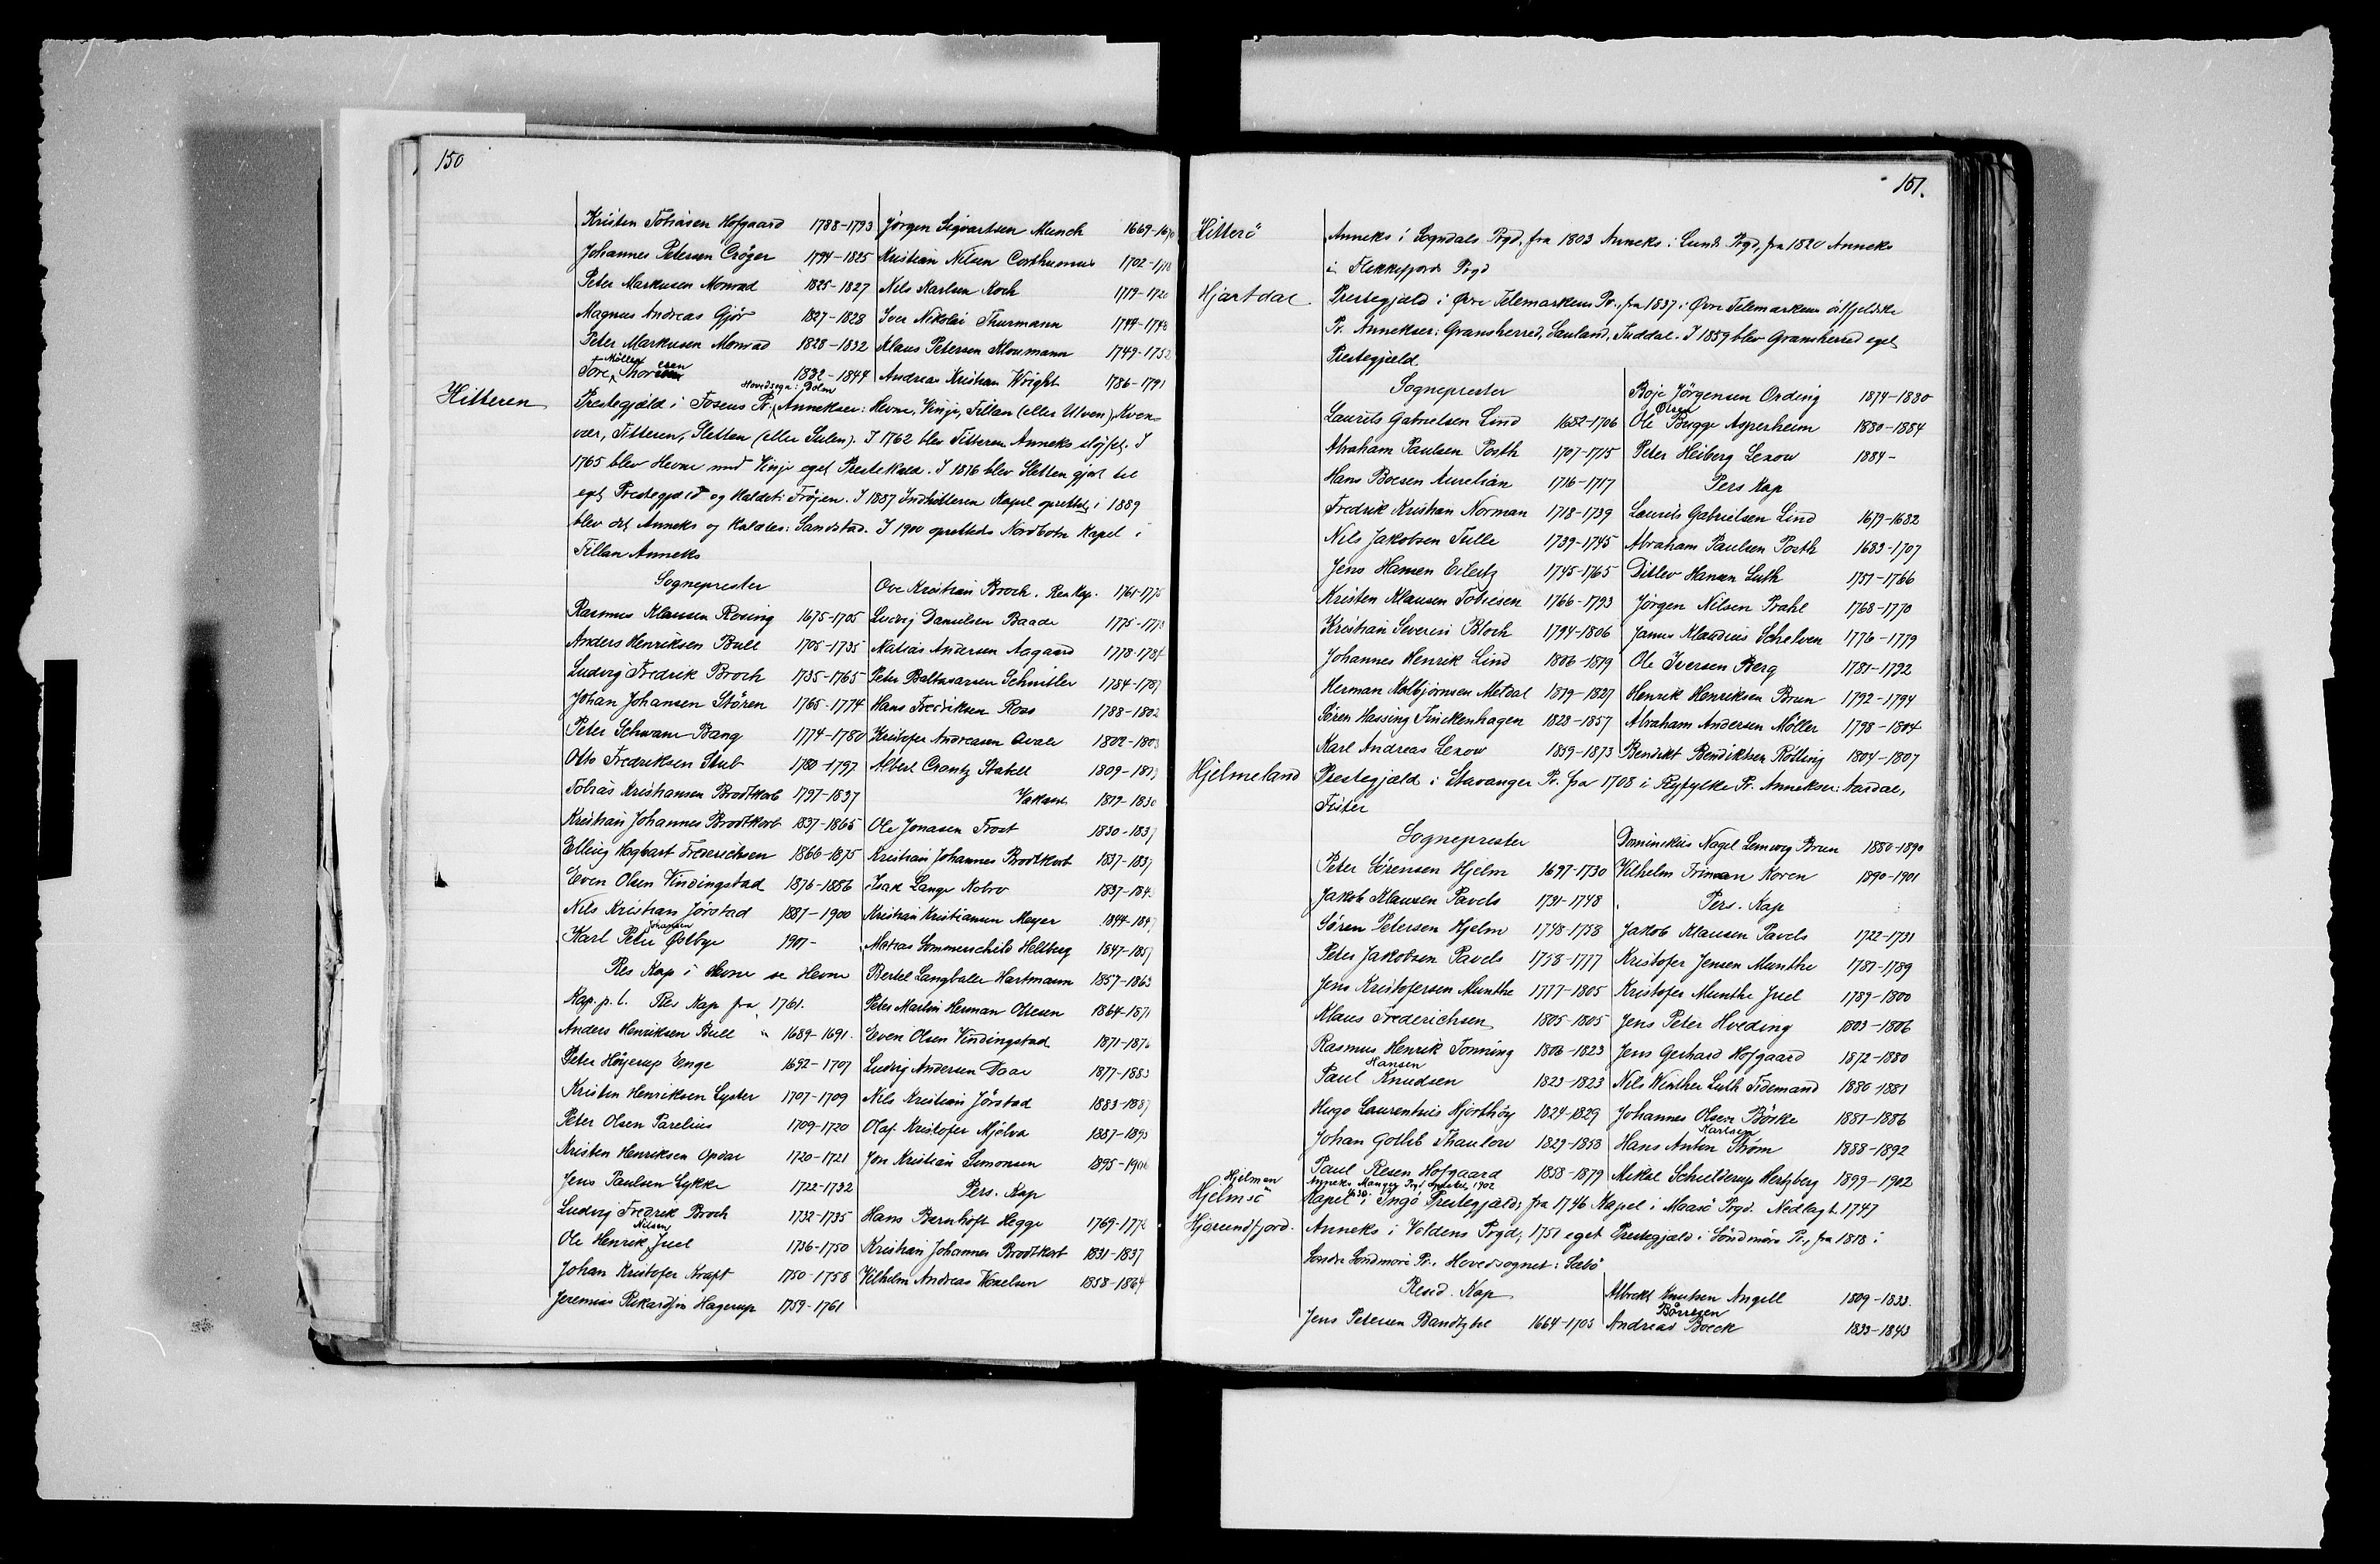 150
Kristen Tobiasen Hofgaard 1788-1793
Johannes Petersen Crøger 1794-1825
Peter Markusen Monrad 1825-1827
Magnus Andreas Gjör 1827-1828
Peter Markusen Monrad 1828-1832
Möller
Tore Thor 1832-1844
Jörgen Sigvartsen Munch 1669-
Kristian Nilsen Corthumus 1702-
Nils Karlsen Koch 1719-1720
Iver Nikolai Thurmann 1744-
Klaus Petersen Kloumann 1749-1752
Andreas Kristian Wright 1786-1791
Hovedsogn: Dolen
Hitteren Prestegjæld i Fosens Pr, Annekser: Hevne, Vinje, Fillan (eller Ulven), Kven-
vær, Titteren, Sletten (eller Sulen). I 1762 blev Titteren Anneks sløjfet. I
1765 blev Hevne med Vinje eget Prestekald. I 1876 blev Sletten gjort til
eget Prestegjæld og kaldet: Frøjen. I 1887 Indhitteren Kapel oprettet, i 1889
blev det Anneks og kaldtes: Sandstad. I 1900 oprettedes Nordbotn Kapel i
Fillan Anneks
Sogneprester
Rasmus Klausen Rosing 1675-1705
Anders Henriksen Bull 1705-1735
Ludvig Fredrik Broch 1735-1765
Johan Johansen Stören 1765-1774
Peter Schwane Bang 1774-1780
Otto Fredriksen Stub 1780-1797
Tobias Kristiansen Brodtkorb 1797-1837
Kristian Johannes Brodtkorb 1837-1865
Elling Hagbart Frederichsen 1866-1875
Even Olsen Vindingstad 1876-1886
Nils Kristian Jörstad 1887-1900
Johansen
Karl Peter Østbye 1901-
Res Kap i Hevne se Hevne
Kap. p. l. Res Kap fra 1761.
Anders Henriksen Bull 1689-1691
Peter Höyerup Enge 1692-1707
Kristen Henriksen Lyster 1707-1709
Peter Olsen Parelius 1709-1720
Kristen Henriksen Opdal 1720-1721
Jens Paulsen Lykke 1722-1732
Ludvig Fredrik Broch 1732-1735
Nilsen
Ole Henrik Juel 1736-1750
Johan Kristofer Kraft 1750-1758
Jeremias Rikardsen Hagerup 1759-1761
Ove Kristian Broch. Res Kap. 1761-1775
Ludvig Danielsen Baade 1775-
Matias Andersen Aagaard 1778-1784
Peter Baltasarsen Schnitler 1784-1787
Hans Fredriksen Ross 1788-1802
Kristofer Andreasen Qvale 1802-
Albert Crantz Stabell 1809-
Vakant 1819-1830
Ole Jonasen Frost 1830-1837
Kristian Johannes Brodtkorb 1837-1837
Isak Lange Kobro 1837-
Kristian Kristiansen Meyer 1844-1847
Matias Sommerschild Heltberg 1847-1857
Bertel Langballe Hartmann 1857-1863
Peter Martin Herman Ottesen 1864-1871
Even Olsen Vindingstad 1871-1876
Ludvig Andersen Daae 1877-1883
Nils Kristian Jörstad 1883-1887
Olaf Kristofer Mjelva 1887-1895
Jon Kristian Simonsen 1895-1906
Pers. Kap
Hans Bernhoft Hegge 1769-
Kristian Johannes Brodtkorb 1831-1837
Vilhelm Andreas Wexelsen 1858-1864
151.
Hitterö Anneks i Sogndals Prgd, fra 1803 Anneks i Lunds Prgd, fra 1820 Anneks
i Flekkefjords Prgd
Hjartdal Prestegjæld i Øvre Telemarkens Pr., fra 1837 i Øvre Telemarkens östfjeldske
Pr. Annekser: Gransherred, Sauland, Tuddal. I 1859 blev Gransherred eget
Prestegjæld.
Sogneprester
Laurits Gabrielsen Lind 1682-1706
Abraham Paulsen Posth 1707-1715
Hans Boesen Aurelian 1716-1717
Fredrik Kristian Norman 1718-1739
Nils Jakobsen Tulle 1739-1745
Jens Hansen Eilertz 1745-1765
Kristen Klausen Tobiesen 1766-1793
Kristian Severin Bloch 1794-1806
Johannes Henrik Lind 1806-1819
Herman Kolbjørnsen Meldal 1819-1827
Sören Hassing Finckenhagen 1828-1857
Karl Andreas Lexow 1859-1873
Boje Jörgensen Ording 1874-1880
Olsen
Ole Bugge Asperheim 1880-1884
Peter Heiberg Lexow 1884-
Pers Kap
Laurits Gabrielsen Lind 1679-1682
Abraham Paulsen Posth 1683-1707
Ditlev Hansen Luth 1751-1766
Jörgen Nilsen Prahl 1768-1770
Janus Klaudius Schelven 1776-1779
Ole Iversen Berg 1781-1792
Henrik Henriksen Brun 1792-1794
Abraham Andersen Möller 1798-1804
Bendikt Bendiktsen Rölling 1804-1807
Hjelmeland Prestegjæld i Stavanger Pr. fra 1708 i Ryfylke Pr. Annekser: Aardal,
Fister
Sogneprester
Peter Sörensen Hjelm 1697-1730
Jakob Klausen Pavels 1731-1748
Sören Petersen Hjelm 1748-1758
Peter Jakobsen Pavels 1758-1777
Jens Kristofersen Munthe 1777-1805
Klaus Frederichsen 1805-1805
Rasmus Henrik Tonning 1806-1823
Hansen
Paul Knudsen 1823-1823
Hugo Laurentius Hjorthöy 1824-1829
Johan Gotleb Thaulow 1829-1858
Paul Resen Hofgaard 1858-1879
Dominikus Nagel Lemvig Brun 1880-1890
Vilhelm Friman Koren 1890-1901
Pers. Kap
Jakob Klausen Pavels 1722-1731
Kristofer Jensen Munthe 1787-1789
Kristofer Munthe Juel 1789-1800
Jens Peter Hveding 1803-1806
Jens Gerhard Hofgaard 1872-1880
Nils Winther Luth Tidemand 1880-1881
Johannes Olsen Börke 1881-1886
Karlsen
Hans Anton Strøm 1888-1892
Mikal Schelderup Hertzberg 1899-1902
Hjelman Anneks Manger Prgd 1902
Hjelmsö Kapel i Ingö Prestegjæld, fra 1746 Kapel i Maasö Prgd. Nedlagt 1747
Hjörundfjord. Anneks i Voldens Prgd, 1751 eget Prestegjæld i Söndmöre Pr., fra 1818 i
Söndre Söndmöre Pr., Hovedsognet: Sæbö
Resid. Kap
Jens Petersen Bandtzbol 1664-1703
Albrekt Knutsen Angell 1809-1833.
Börresen
Andreas Boeck 1833-1843